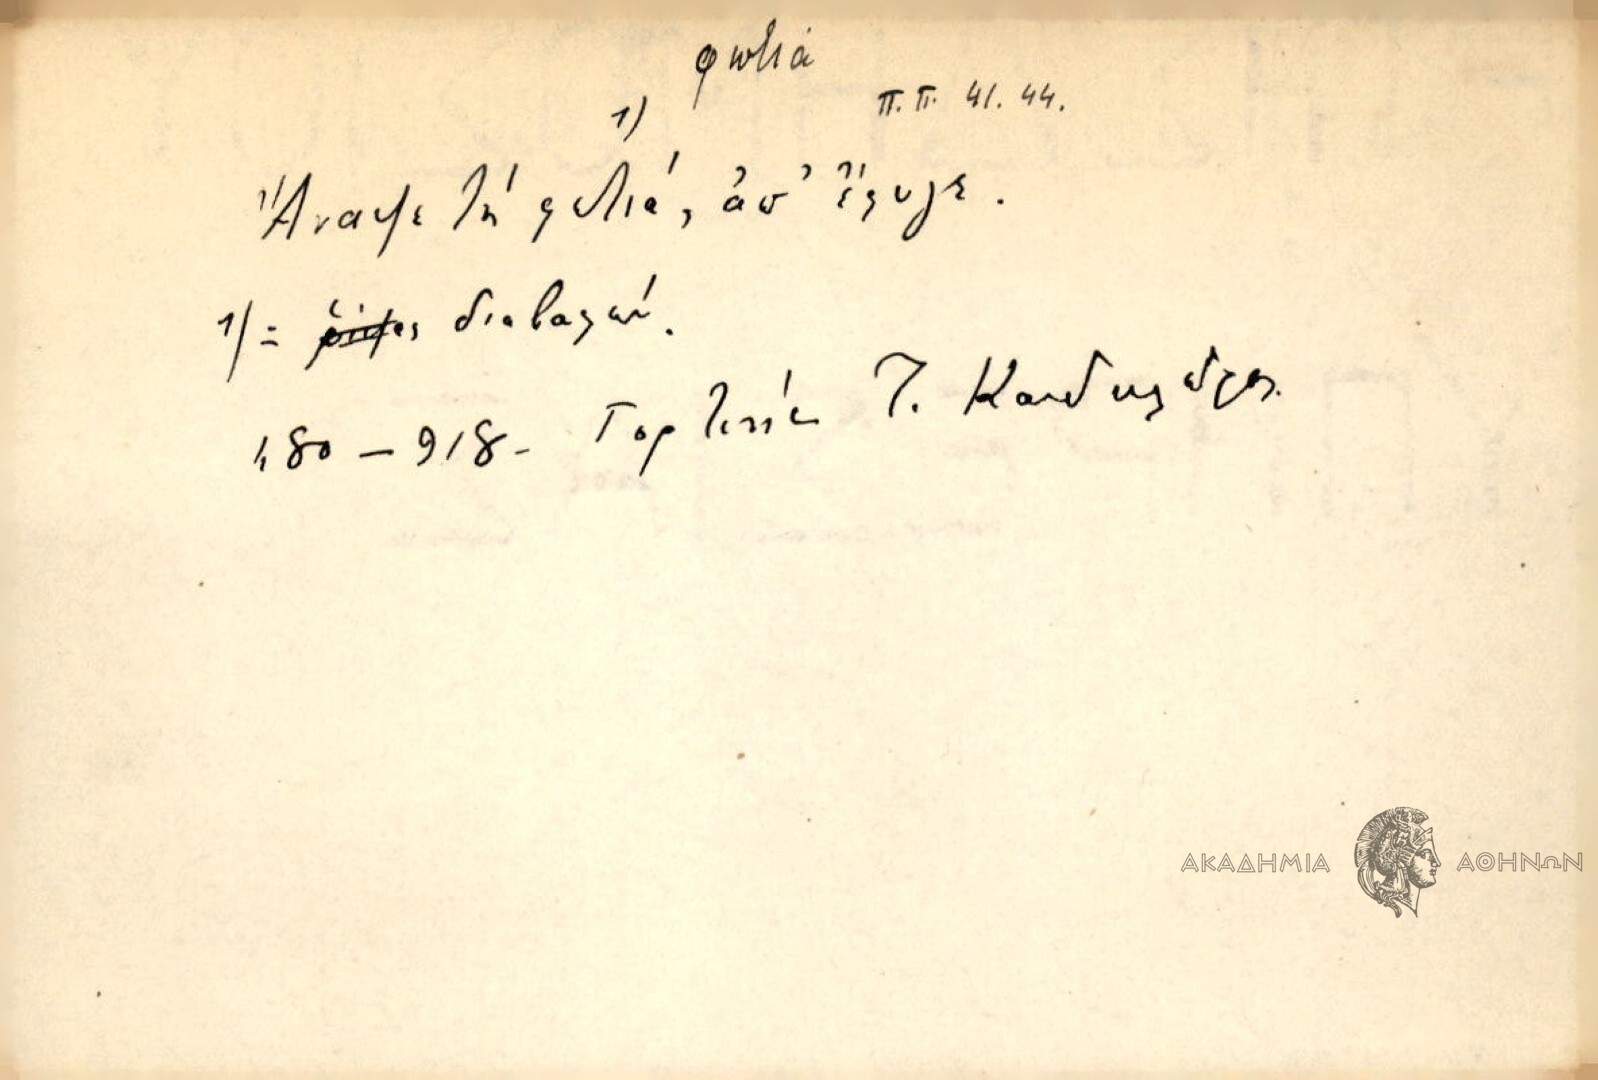 φωτιά
Π.Π. 41. 44.
1)
Ἄναψε τὴ φωτιά, ἀπ' ἔφυγε.
1) = ρίψας διαβολήν.
180 – 918 – Γορτυνία Τ. Κανδηλῶρος.
ΑΚΑΔΗΜΙΑ ΑΘΗΝΩΝ